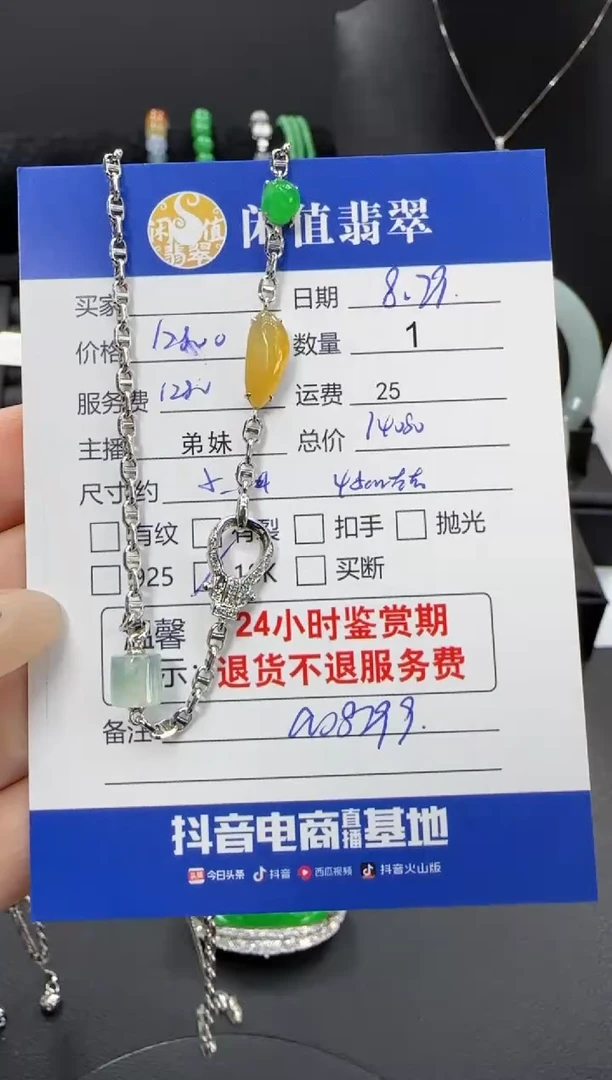 闲值翡翠
闲值翡翠
买家 日期 8.29.
价格 12800 数量 1
服务费 1280 运费 25
主播 弟妹 总价 14080
尺寸约 45cm左右
有纹 有裂 扣手 抛光
925 18K 买断
温馨 24小时鉴赏期
示: 退货不退服务费
备注: a08299.
抖音电商直播基地
头条 今日头条 抖音 西瓜视频 抖音火山版